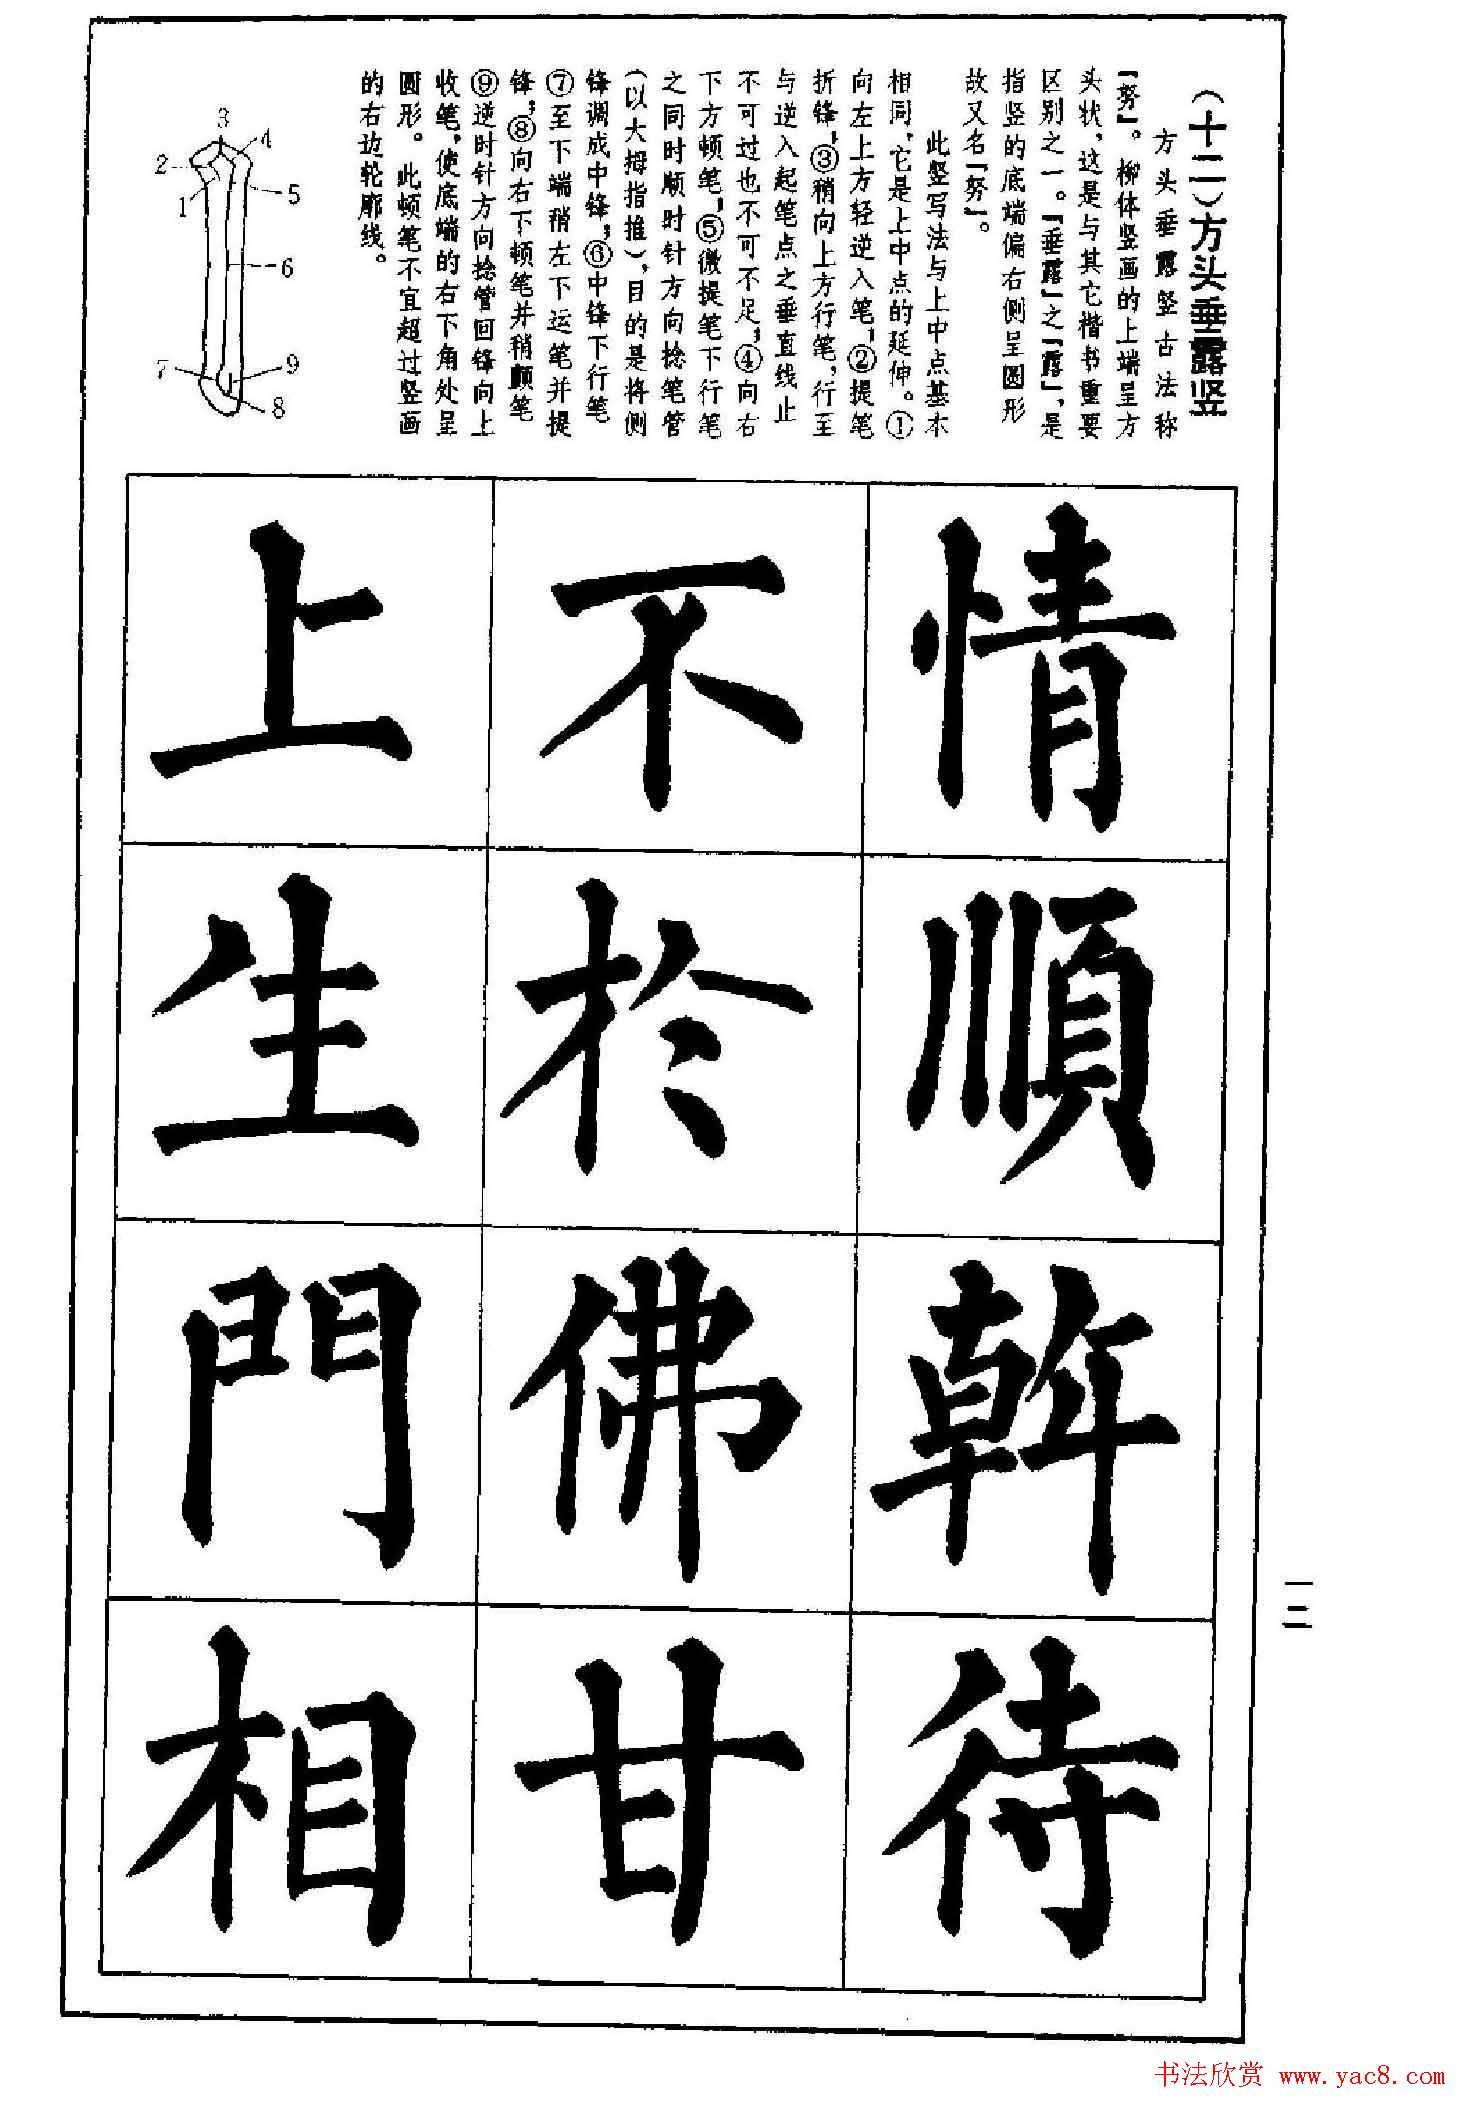 （十二）方头垂露竖
方头垂露竖古法称
『努』。柳体竖画的上端呈方
头状，这是与其它楷书重要
区别之一。『垂露』之『露』，是
指竖的底端偏右侧呈圆形
故又名『努』。
此竖写法与上中点基本
相同，它是上中点的延伸。①
向左上方轻逆入笔，②提笔
折锋，③稍向上方行笔，行至
与逆入起笔点之垂直线止
不可过也不可不足，④向右
下方顿笔，⑤微提笔下行笔
之同时顺时针方向捻笔管
（以大拇指推），目的是将侧
锋调成中锋，⑥中锋下行笔
⑦至下端稍左下运笔并提
锋，⑧向右下顿笔并稍颤笔
⑨逆时针方向捻管回锋向上
收笔，使底端的右下角处呈
圆形。此顿笔不宜超过竖画
的右边轮廓线。
1
2
3
4
5
6
7
8
9
情順斡待
不於佛甘
上生門相
一二
书法欣赏 www.yac8.com